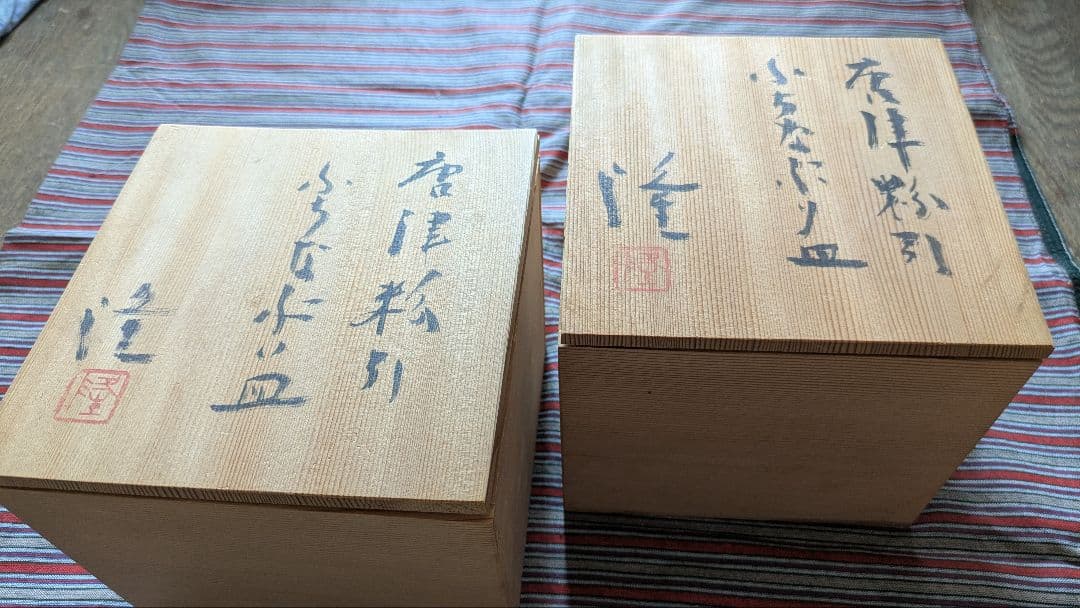 唐津粉引
ふちなぶり皿
隆
隆
唐津粉引
ふちなぶり皿
隆
隆